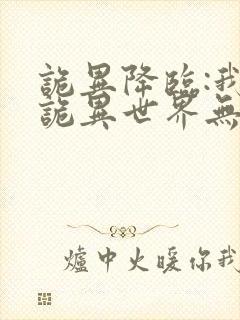 詭異降臨:我
詭異世界無
爐中火暖你我